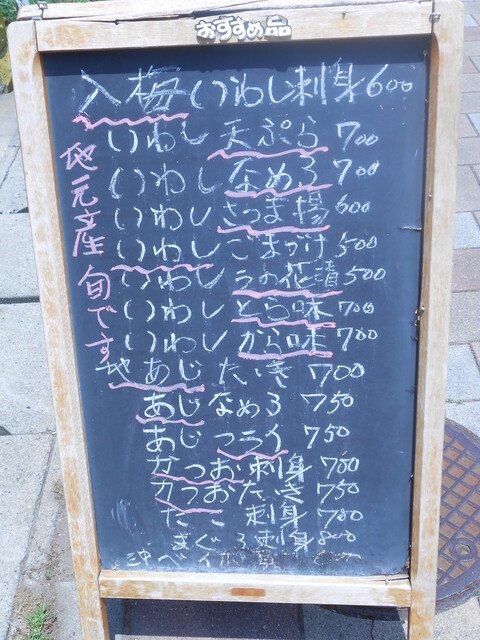 おすすめ品
入梅いわし刺身600
いわし天ぷら700
いわしなめろ700
いわしさつま揚600
いわしごまづけ500
いわしうの花漬500
いわしとら味700
いわしから味700
地あじたたき700
あじなめろ750
あじフライ750
かつお刺身700
カツおたたき750
たこ刺身700
まぐろ刺身800
地元産旬です